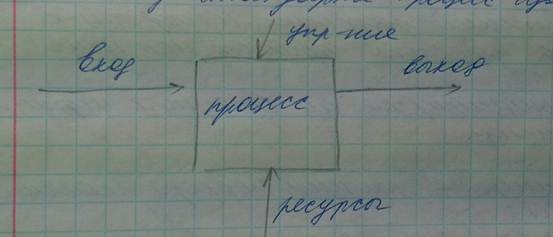 процес
упр-ние
вход
выход
процесс
ресурсы